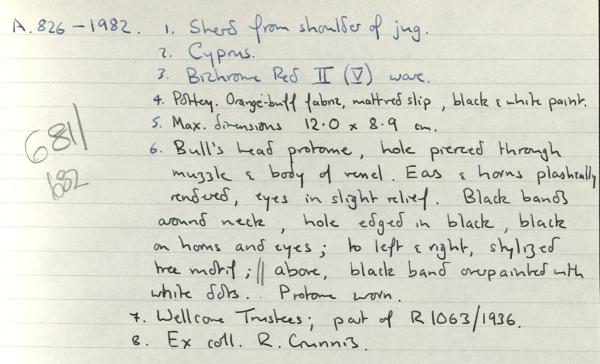 A.826-1982. 1. Sherd from shoulder of jug.
2. Cyprus.
3. Bichrome Red II (V) ware.
4. Pottery. Orange-buff fabric, matt red slip, black & white paint.
5. Max. dimensions 12.0 x 8.9 cm.
6. Bull's head protome, hole pierced through
muzzle & body of vessel. Ears & horns plastically
rendered, eyes in slight relief. Black bands
around neck, hole edged in black, black
on horns and eyes; to left & right, stylized
tree motif; || above, black band overpainted with
white dots. Protome worn.
7. Wellcome Trustees; part of R1063/1936.
8. Ex coll. R. Gunnis.
681/
682